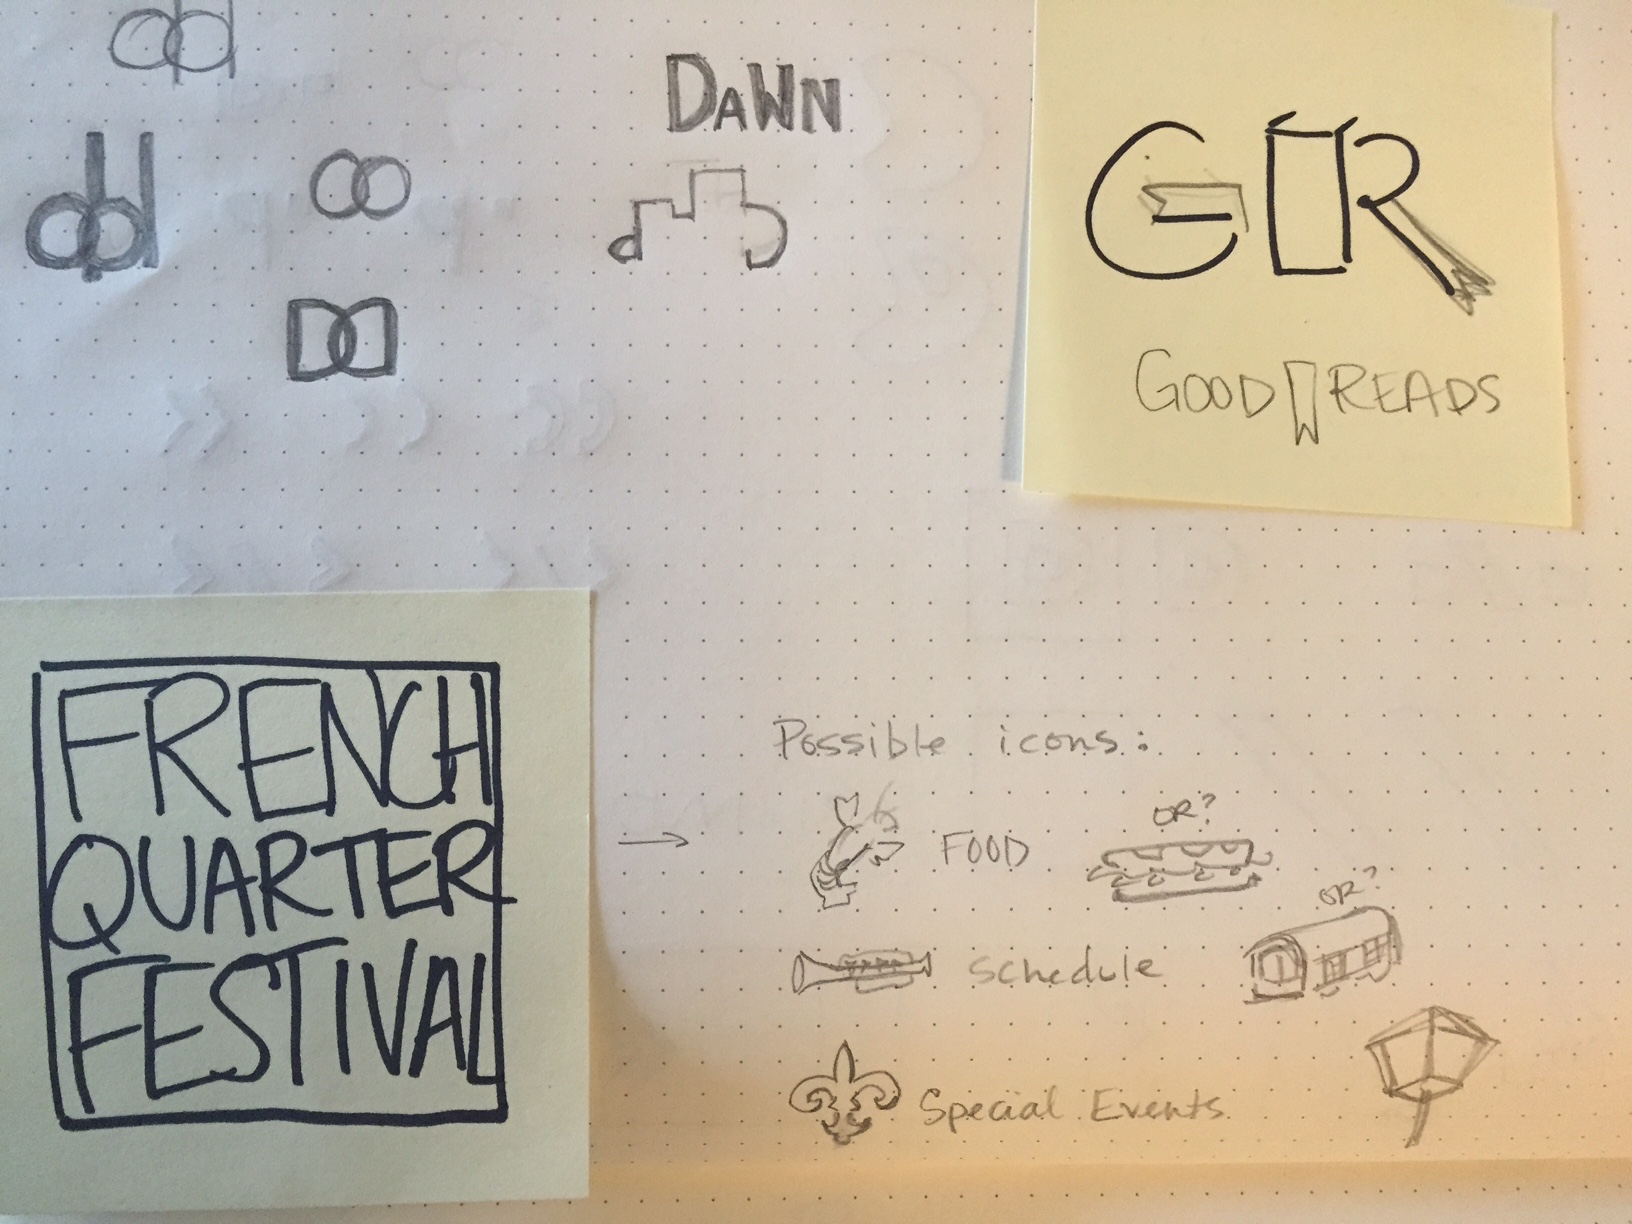 dd
DAWN
dd
DD
GR
GOOD READS
FRENCH
QUARTER
FESTIVAL
Possible icons:
FOOD
OR?
schedule
OR?
Special Events